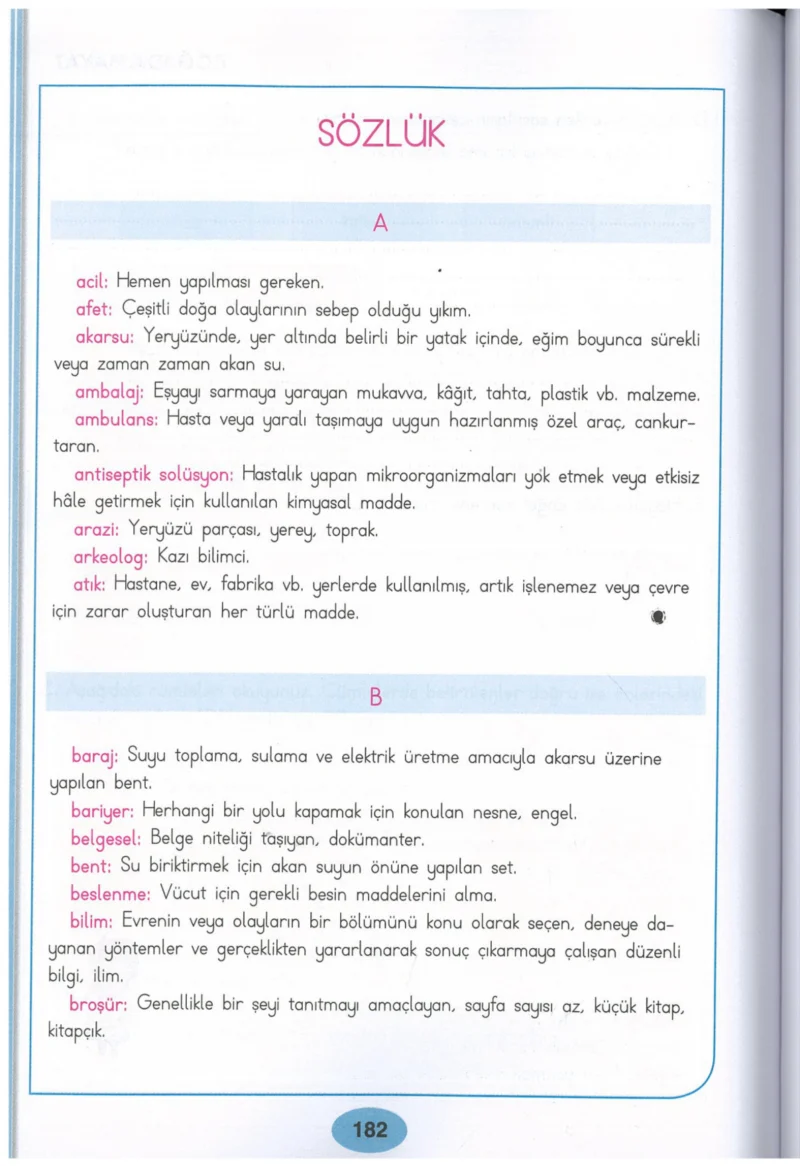 SÖZLÜK
A
acil: Hemen yapılması gereken.
afet: Çeşitli doğa olaylarının sebep olduğu yıkım.
akarsu: Yeryüzünde, yer altında belirli bir yatak içinde, eğim boyunca sürekli
veya zaman zaman akan su.
ambalaj: Eşyayı sarmaya yarayan mukavva, kâğıt, tahta, plastik vb. malzeme.
ambulans: Hasta veya yaralı taşımaya uygun hazırlanmış özel araç, cankur-
taran.
antiseptik solüsyon: Hastalık yapan mikroorganizmaları yok etmek veya etkisiz
hâle getirmek için kullanılan kimyasal madde.
arazi: Yeryüzü parçası, yerey, toprak.
arkeolog: Kazı bilimci.
atık: Hastane, ev, fabrika vb. yerlerde kullanılmış, artık işlenemez veya çevre
için zarar oluşturan her türlü madde.
B
baraj: Suyu toplama, sulama ve elektrik üretme amacıyla akarsu üzerine
yapılan bent.
bariyer: Herhangi bir yolu kapamak için konulan nesne, engel.
belgesel: Belge niteliği taşıyan, dokümanter.
bent: Su biriktirmek için akan suyun önüne yapılan set.
beslenme: Vücut için gerekli besin maddelerini alma.
bilim: Evrenin veya olayların bir bölümünü konu olarak seçen, deneye da-
yanan yöntemler ve gerçeklikten yararlanarak sonuç çıkarmaya çalışan düzenli
bilgi, ilim.
broşür: Genellikle bir şeyi tanıtmayı amaçlayan, sayfa sayısı az, küçük kitap,
kitapçık.
182